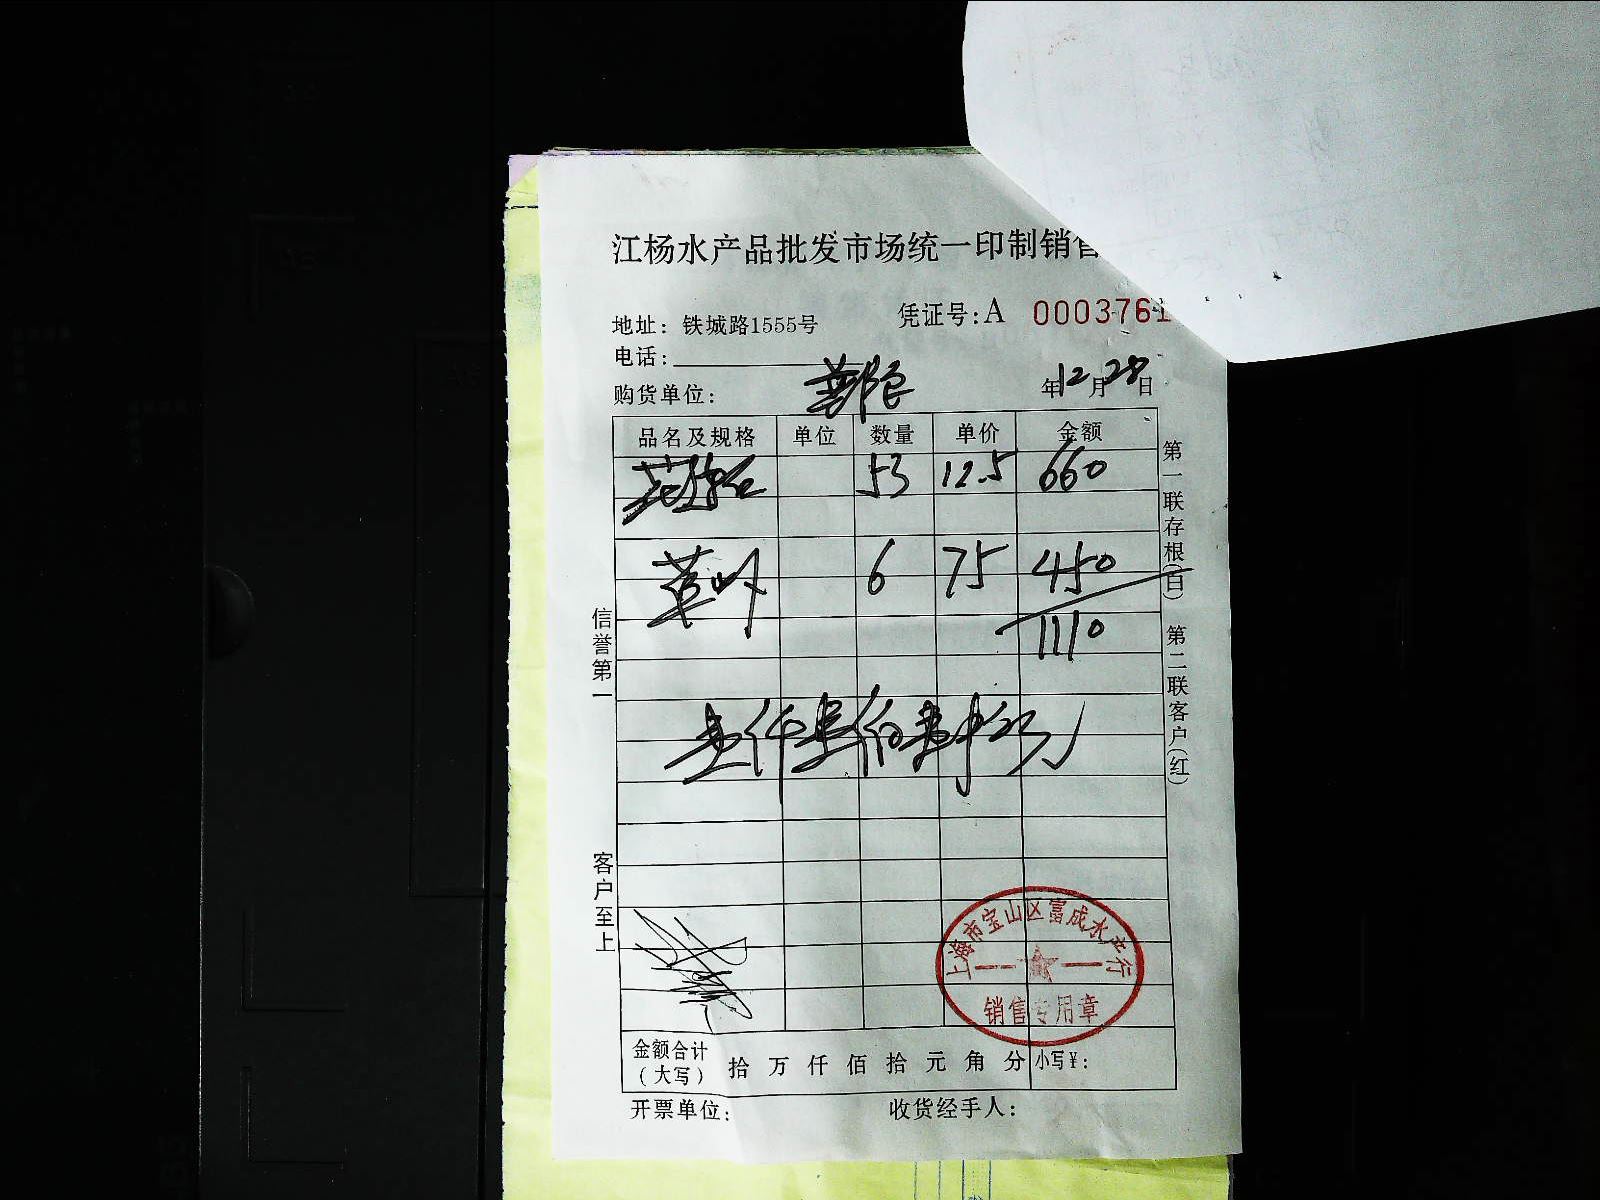 江杨水产品批发市场统一印制销售
凭证号:A 0003761
地址: 铁城路1555号
电话:
购货单位:
年12月28日
品名及规格 单位 数量 单价 金额
53 12.5 660
6 75 450
1110
壹仟壹佰壹拾元
第一联存根(白) 第二联客户(红)
信誉第一
客户至上
上海市宝山区富成水产行
销售专用章
金额合计(大写) 拾 万 仟 佰 拾 元 角 分 小写¥:
开票单位: 收货经手人: